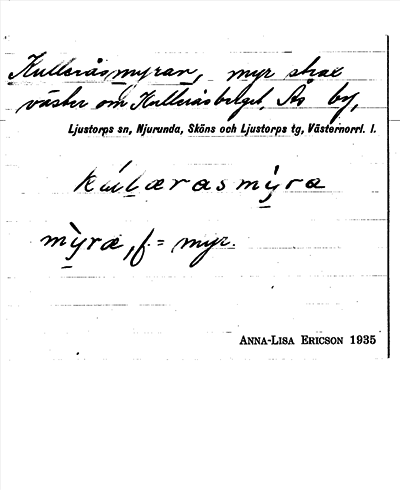 Kulleråsmyran, myr strax
väster om Kulleråsberget, Ås by,
Ljustorps sn, Njurunda, Sköns och Ljustorps tg, Västernorrl. l.
kúlærasmỳra
mỳræ, f. = myr.
ANNA-LISA ERICSON 1935